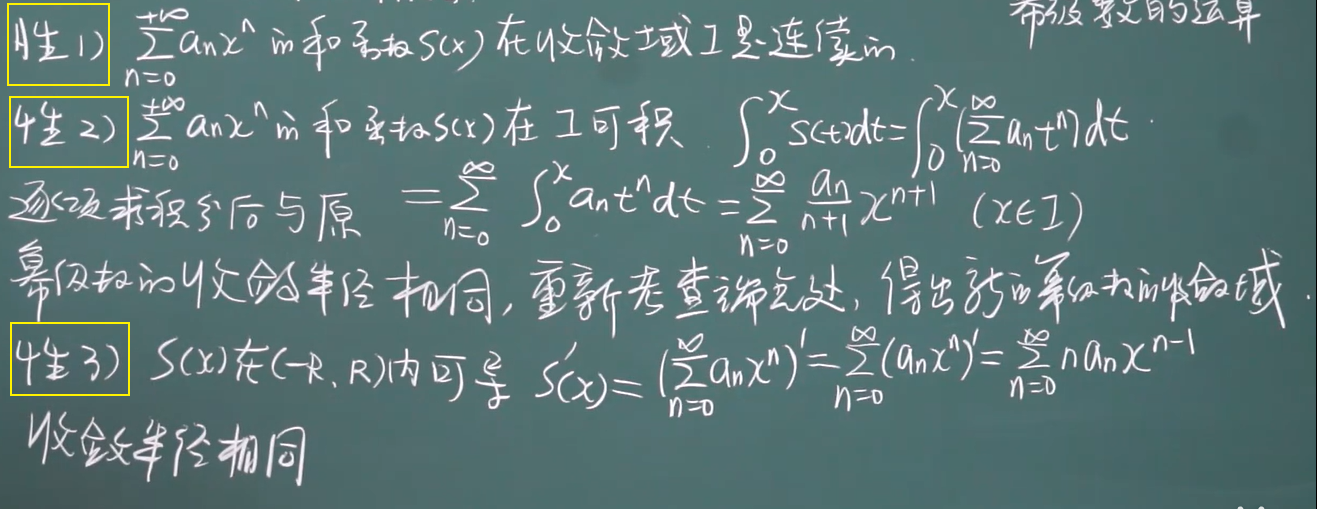 幂级数的运算
性1) $\sum_{n=0}^{+\infty} a_n x^n$ 的和函数S(x)在收敛域I是连续的.
性2) $\sum_{n=0}^{+\infty} a_n x^n$ 的和函数S(x)在I可积. $\int_0^x S(t)dt = \int_0^x (\sum_{n=0}^{\infty} a_n t^n)dt$.
逐项求积分后与原 $= \sum_{n=0}^{\infty} \int_0^x a_n t^n dt = \sum_{n=0}^{\infty} \frac{a_n}{n+1} x^{n+1}$ (x∈I)
幂级数的收敛半径相同,重新考查端点处,得出新的幂级数的收敛域.
性3) S(x)在(-R,R)内可导 $S'(x) = (\sum_{n=0}^{\infty} a_n x^n)' = \sum_{n=0}^{\infty} (a_n x^n)' = \sum_{n=0}^{\infty} n a_n x^{n-1}$
收敛半径相同